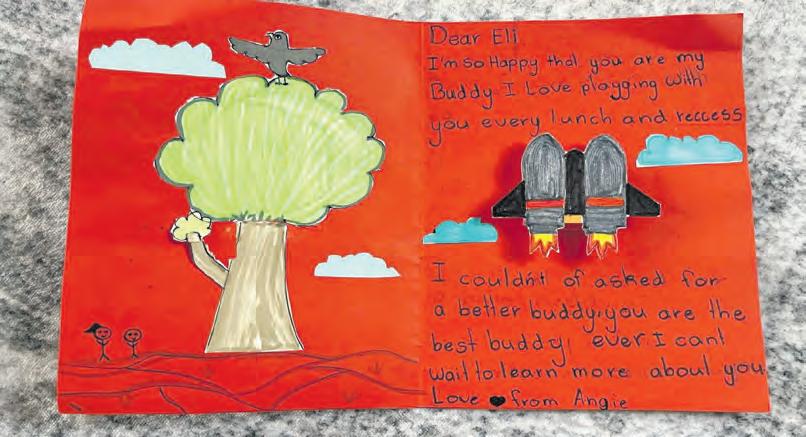 Dear Eli
I'm so Happy that you are my
Buddy I Love plagging with
you every lunch and reccess
I couldn't of asked for
a better buddy, you are the
best buddy, ever. I cant
wait to learn more about you
Love ♥ from Angie